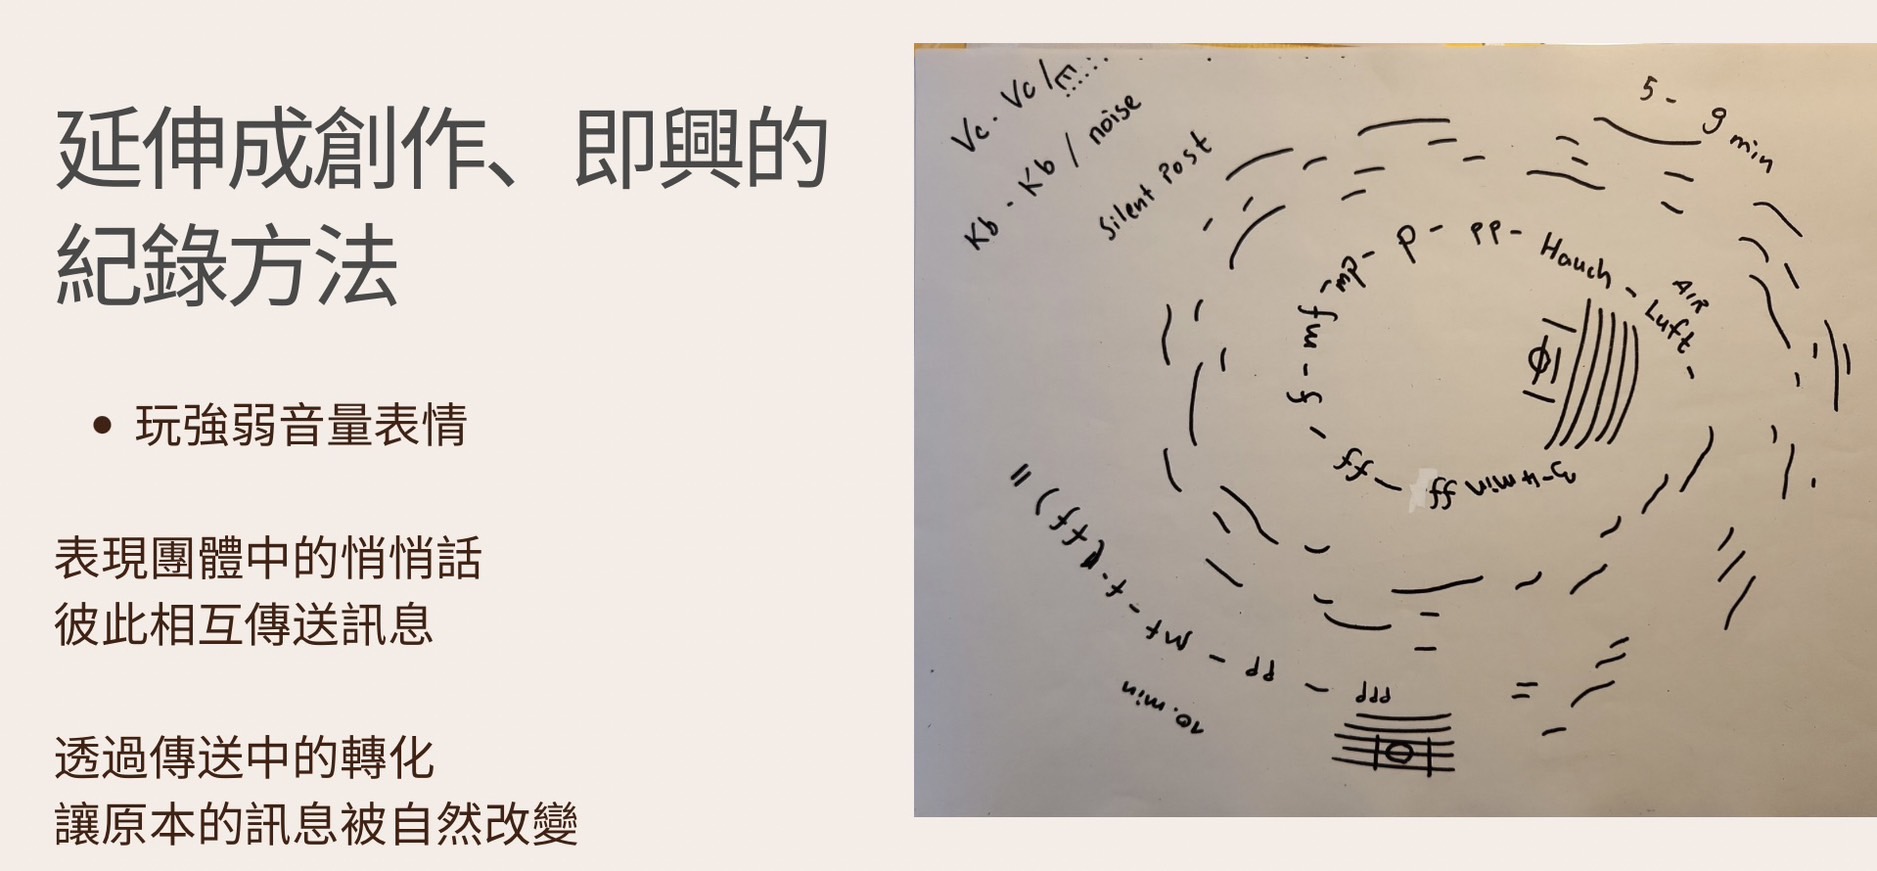 延伸成創作、即興的
紀錄方法
• 玩強弱音量表情
表現團體中的悄悄話
彼此相互傳送訊息
透過傳送中的轉化
讓原本的訊息被自然改變
Vc. Vc /
Kb - Kb / noise
Silent Post
5 - 9 min
3-4 min ff - ff - f - mf - mp - p - pp - Hauch - Luft -
AIR
10. min
ppp - pp - mf - f - (ff) =